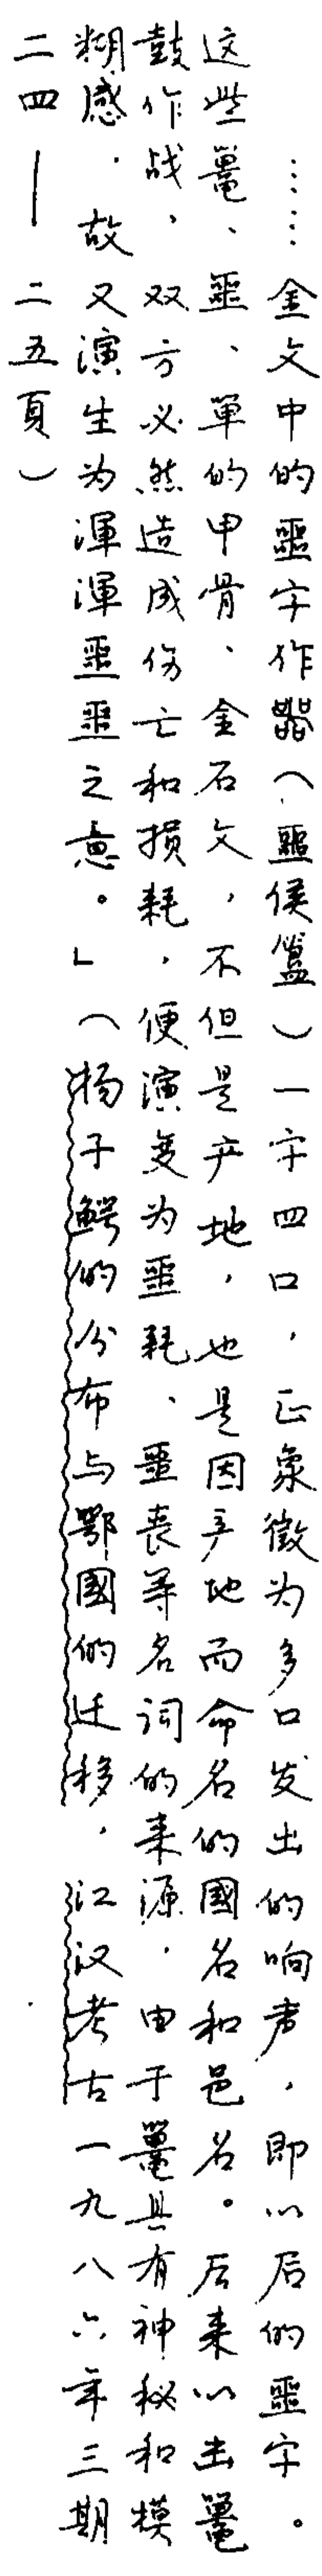 ……金文中的噩字作㗊（噩侯簋）一字四口，正象徵为多口发出的响声，即以后的噩字。
这些鼉、噩、單的甲骨、金石文，不但是产地，也是因产地而命名的國名和邑名。后来以出鼉
鼓作战，双方必然造成伤亡和损耗，便演变为噩耗、噩丧等名词的来源，由于鼉具有神秘和模
糊感，故又演生为渾渾噩噩之意。」（扬子鳄的分布与鄂國的迁移，江汉考古一九八六年三期
二四——二五頁）